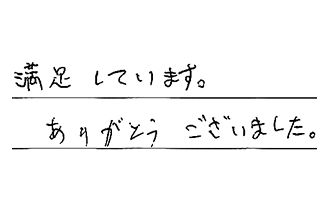 満足しています。
ありがとうございました。